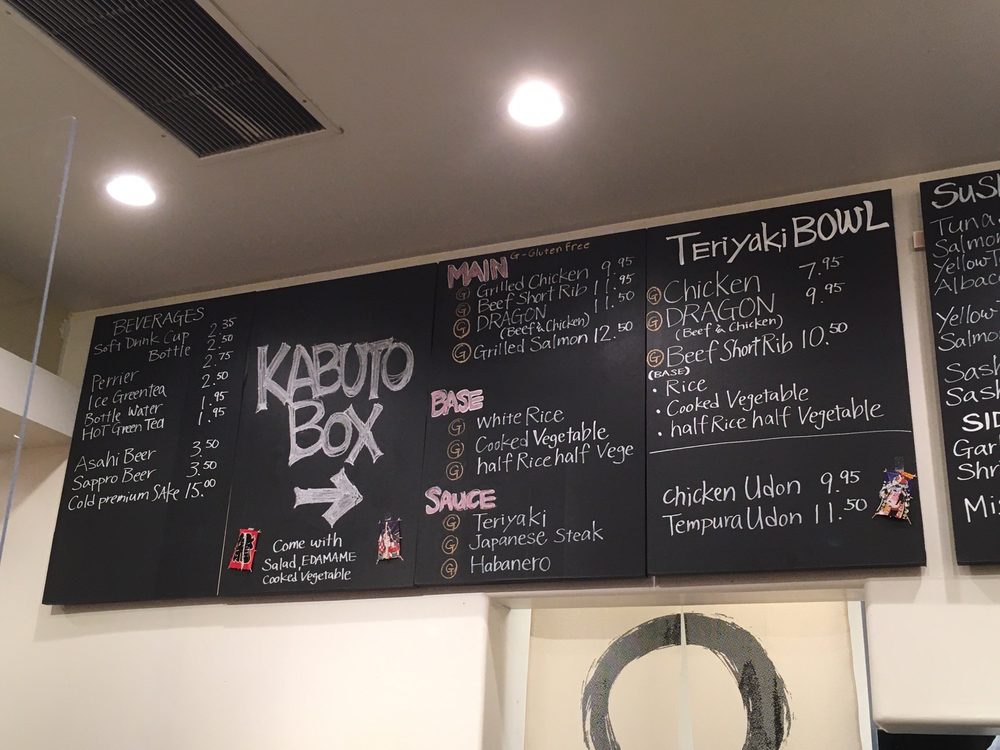 BEVERAGES
Soft Drink Cup 2.35
Bottle 2.50
Perrier 2.75
Ice Greentea 2.50
Bottle Water 1.95
HOT Green Tea 1.95
Asahi Beer 3.50
Sappro Beer 3.50
Cold premium SAke 15.00
KABUTO
BOX
Come with
Salad, EDAMAME
Cooked Vegetable
MAIN G-Gluten Free
G Grilled Chicken 9.95
G Beef Short Rib 11.95
G DRAGON 11.50
(Beef & Chicken)
G Grilled Salmon 12.50
BASE
G White Rice
G Cooked Vegetable
G half Rice half Vege
SAUCE
G Teriyaki
G Japanese Steak
G Habanero
Teriyaki BOWL
G Chicken 7.95
G DRAGON 9.95
(Beef & Chicken)
G Beef Short Rib 10.50
(BASE)
• Rice
• Cooked Vegetable
• half Rice half Vegetable
Chicken Udon 9.95
Tempura Udon 11.50
Tuna
Salmon
Yellow
Salmon